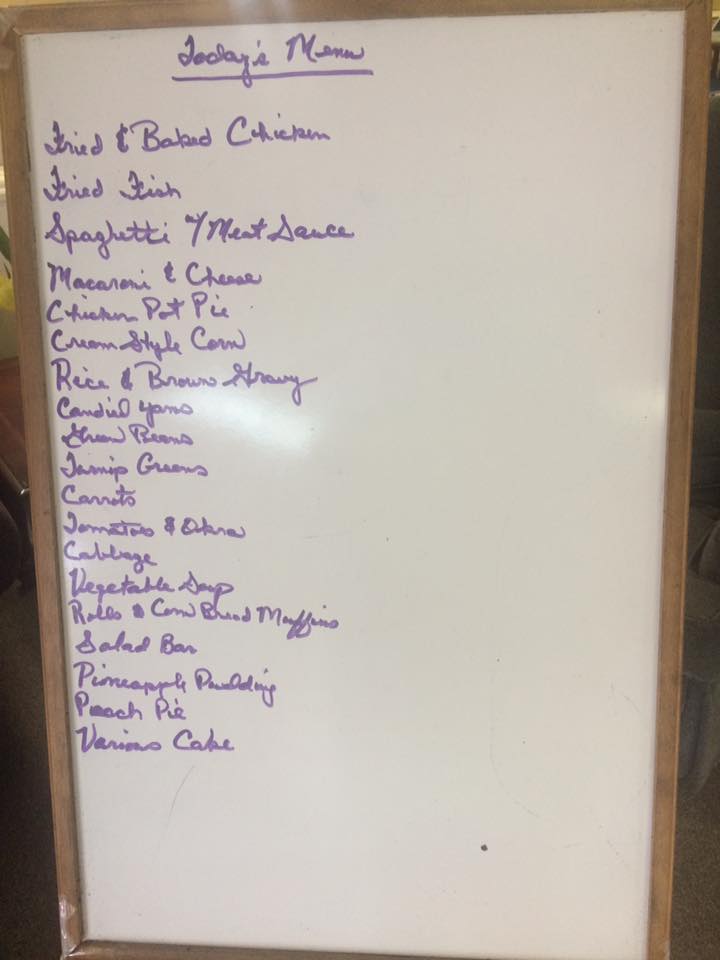 Today's Menu
Fried & Baked Chicken
Fried Fish
Spaghetti w/Meat Sauce
Macaroni & Cheese
Chicken Pot Pie
Cream Style Corn
Rice & Brown Gravy
Candied Yams
Green Beans
Turnip Greens
Carrots
Tomatoes & Okra
Cabbage
Vegetable Soup
Rolls & Corn Bread Muffins
Salad Bar
Pineapple Pudding
Peach Pie
Various Cake